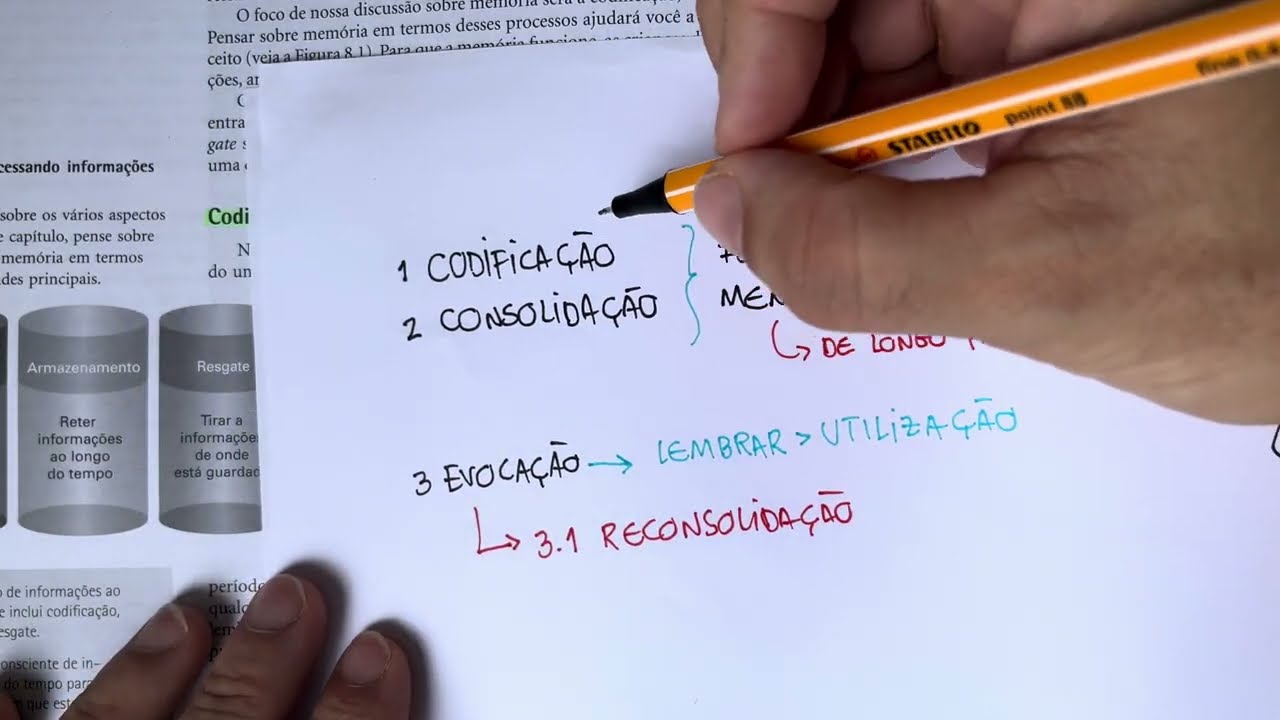 O foco de nossa discussão sobre memória será a
Pensar sobre memória em termos desses processos ajudará você a
ceito (veja a Figura 8.1). Para que a memória funcione, as
ções,
entra
gate
uma
cessando informações
sobre os vários aspectos
e capítulo, pense sobre
memória em termos
des principais.
Codi
N
do un
Armazenamento
Reter
informações
ao longo
do tempo
Resgate
Tirar a
informaçõe
de onde
está guardad
o de informações ao
e inclui codificação,
esgate.
onsciente de in-
do tempo para
m que est
período
qualq
1 CODIFICAÇÃO
2 CONSOLIDAÇÃO
MEN
↳ DE LONGO
3 EVOCAÇÃO → LEMBRAR > UTILIZAÇÃO
↳ 3.1 RECONSOLIDAÇÃO
STABILO point 88 fine 0,4